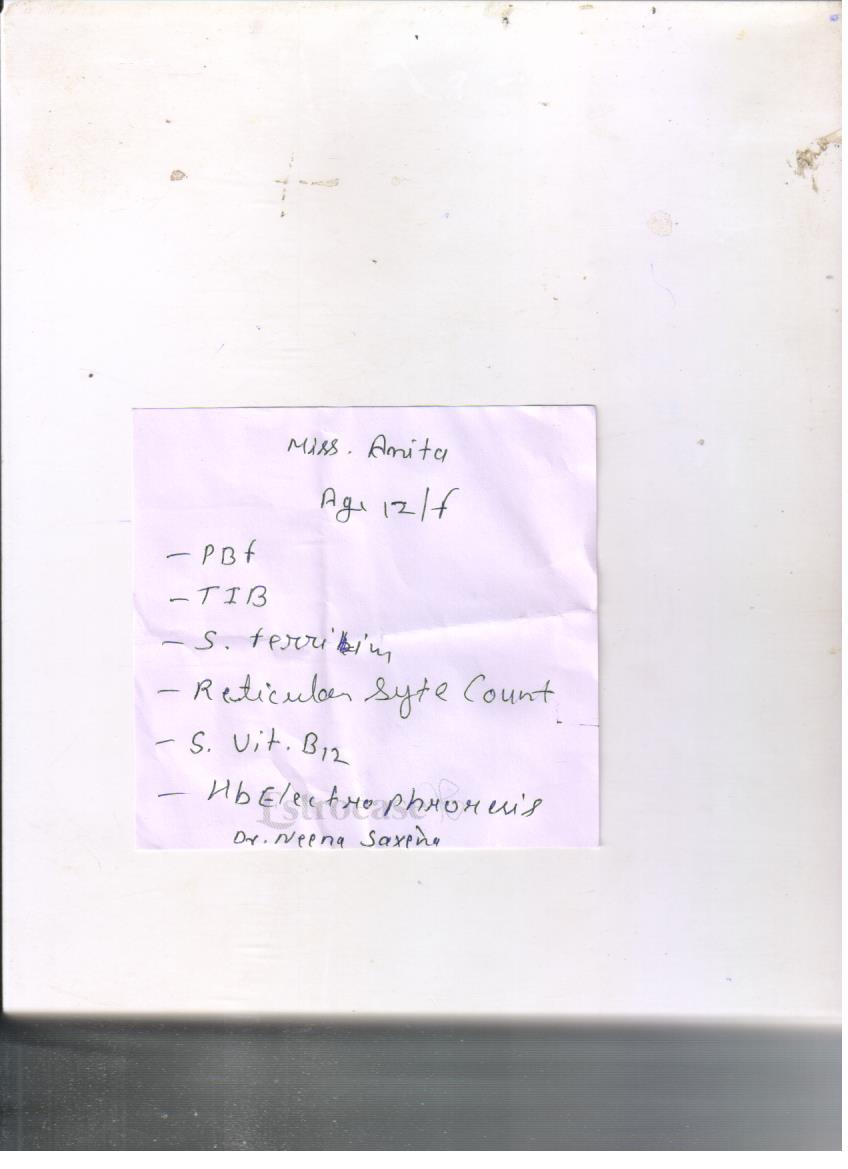 Miss. Anita
Age 12/f
- PBf
- TIB
- S. ferritin
- Reticulan Syte Count
- S. Vit. B12
- Hb Electrophroresis
Estrocase
Dr. Neena Saxena